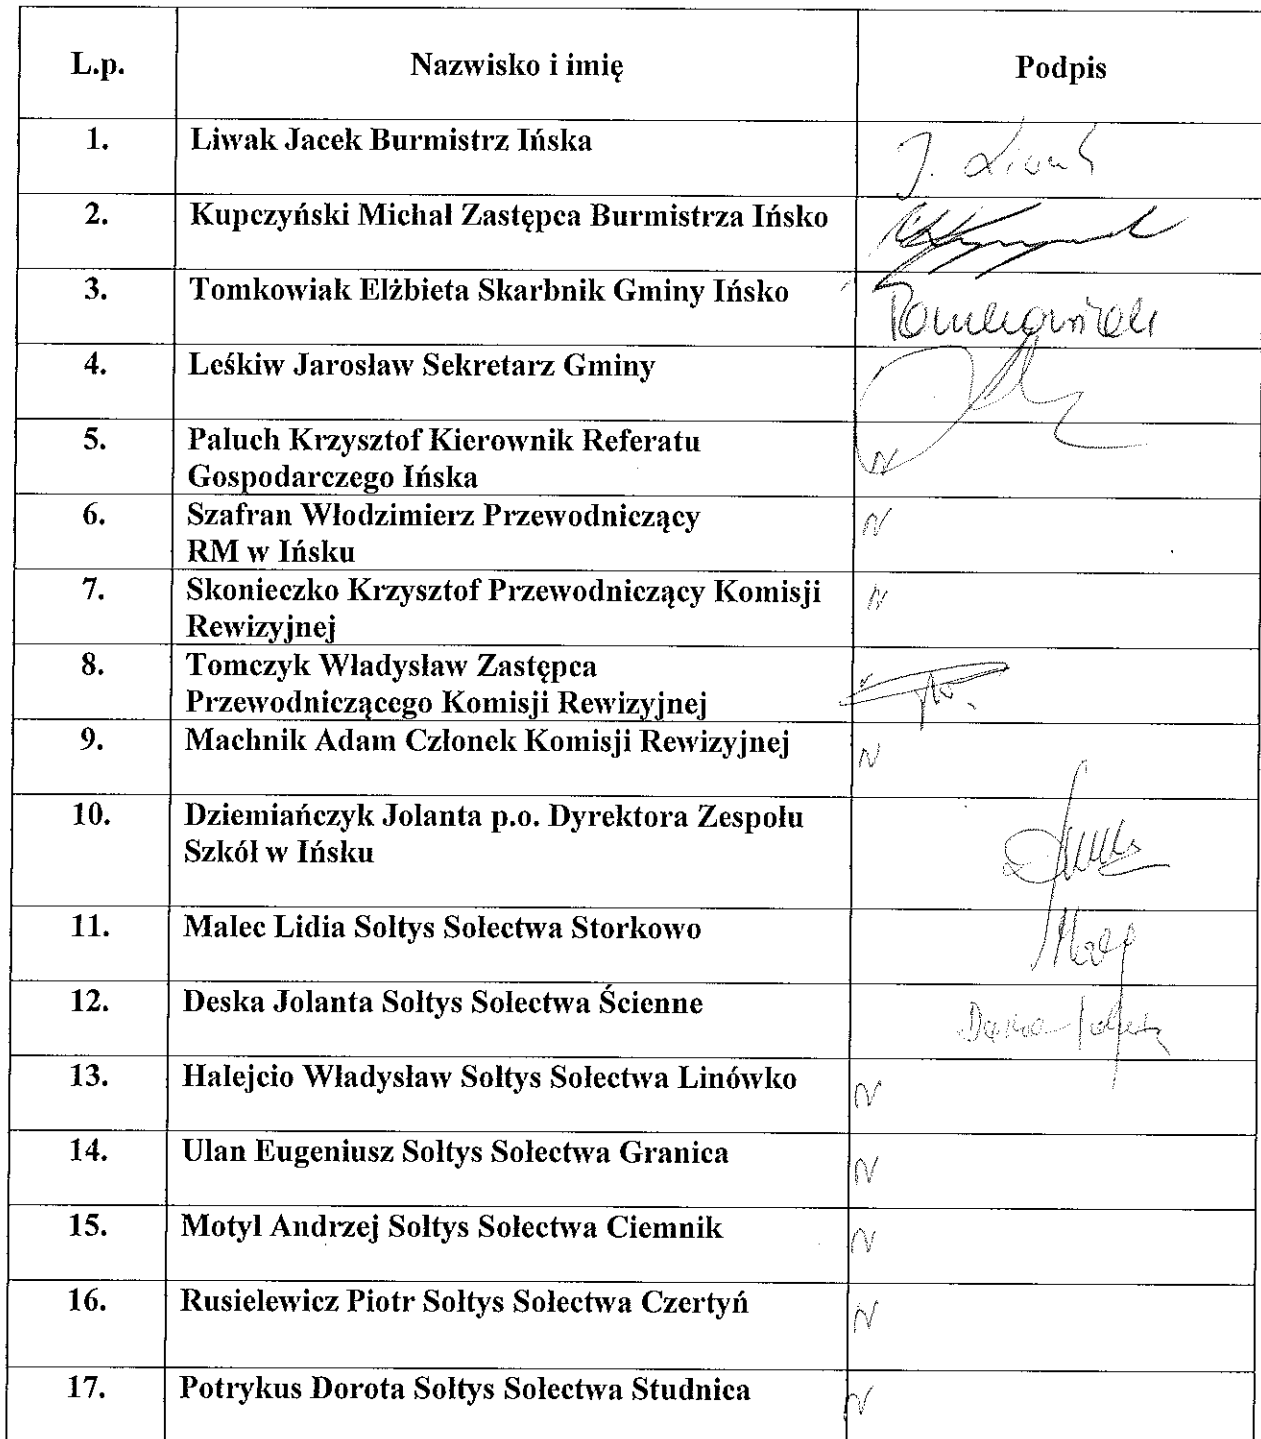 L.p. Nazwisko i imię Podpis
1. Liwak Jacek Burmistrz Ińska J. Liwak
2. Kupczyński Michał Zastępca Burmistrza Ińsko
3. Tomkowiak Elżbieta Skarbnik Gminy Ińsko Tomkowiak
4. Leśkiw Jarosław Sekretarz Gminy
5. Paluch Krzysztof Kierownik Referatu
Gospodarczego Ińska N
6. Szafran Włodzimierz Przewodniczący N
RM w Ińsku
7. Skonieczko Krzysztof Przewodniczący Komisji N
Rewizyjnej
8. Tomczyk Władysław Zastępca
Przewodniczącego Komisji Rewizyjnej
9. Machnik Adam Członek Komisji Rewizyjnej N
10. Dziemiańczyk Jolanta p.o. Dyrektora Zespołu
Szkół w Ińsku
11. Malec Lidia Sołtys Sołectwa Storkowo
12. Deska Jolanta Sołtys Sołectwa Ścienne Deska Jolanta
13. Halejcio Władysław Sołtys Sołectwa Linówko N
14. Ulan Eugeniusz Sołtys Sołectwa Granica N
15. Motyl Andrzej Sołtys Sołectwa Ciemnik N
16. Rusielewicz Piotr Sołtys Sołectwa Czertyń N
17. Potrykus Dorota Sołtys Sołectwa Studnica N